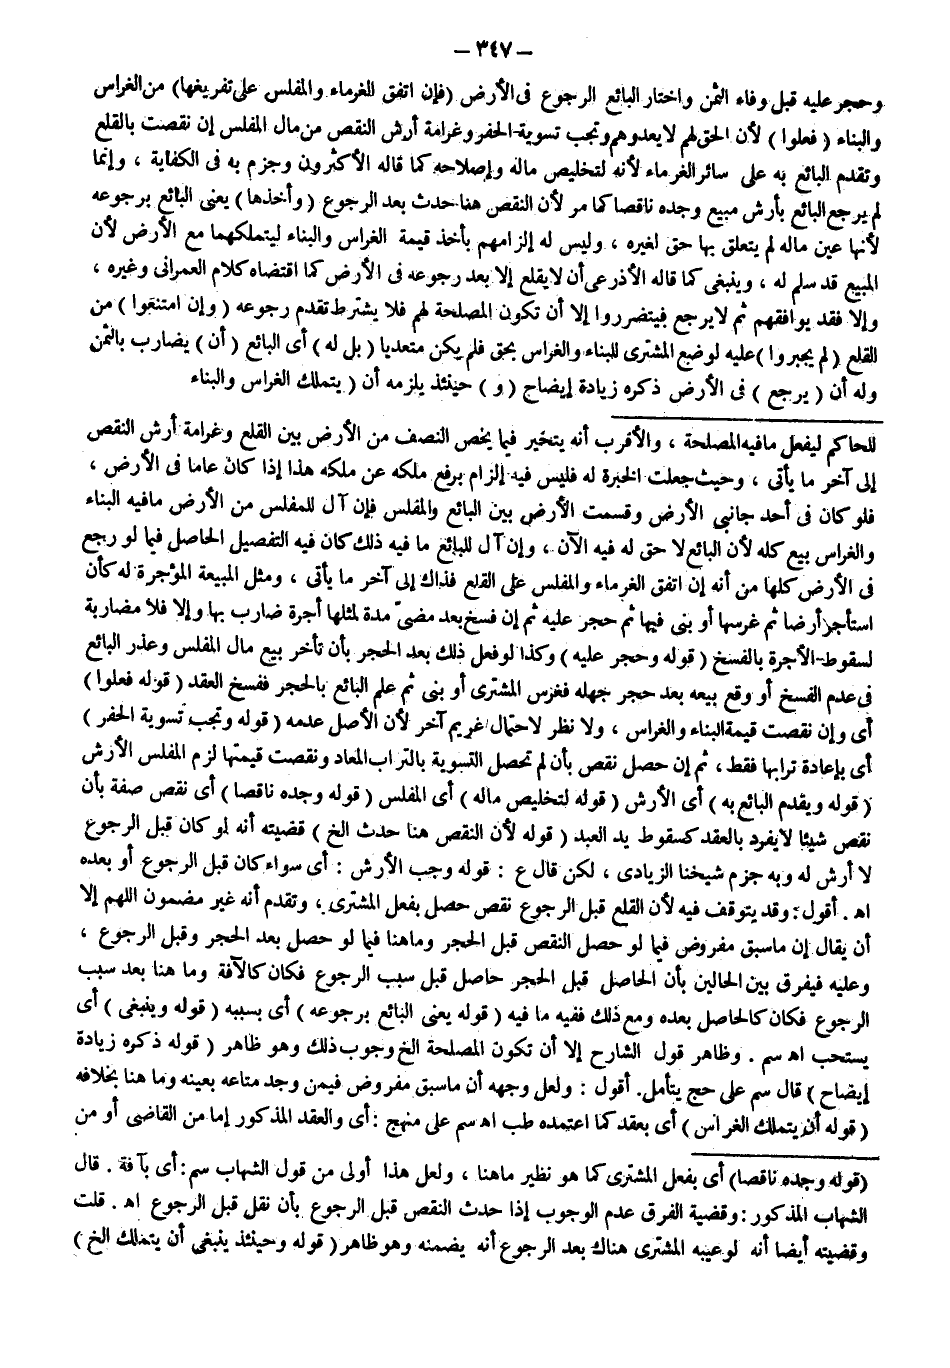 — ٣٤٧ —
وحجر عليه قبل وفاء الثمن واختار البائع الرجوع فى الأرض (فإن اتفق الغرماء والمفلس على تفريغها) من الغراس
والبناء ( فعلوا ) لأن الحق لهم لا يعدوهم وتجب تسوية الحفر وغرامة أرش النقص من مال المفلس إن نقصت بالقلع
وتقدم البائع به على سائر الغرماء لأنه لتخليص ماله وإصلاحه كما قاله الأكثرون وجزم به فى الكفاية ، وإنما
لم يرجع البائع بأرش مبيع وجده ناقصا كما مر لأن النقص هنا حدث بعد الرجوع ( وأخذها ) يعنى البائع برجوعه
لأنها عين ماله لم يتعلق بها حق لغيره ، وليس له إلزامهم بأخذ قيمة الغراس والبناء ليتملكهما مع الأرض لأن
المبيع قد سلم له ، وينبغى كما قاله الأذرعى أن لا يقلع إلا بعد رجوعه فى الأرض كما اقتضاه كلام العمرانى وغيره ،
وإلا فقد يوافقهم ثم لا يرجع فيتضرروا إلا أن تكون المصلحة لهم فلا يشترط تقدم رجوعه ( وإن امتنعوا ) من
القلع ( لم يجبروا ) عليه لوضع المشترى للبناء والغراس بحق فلم يكن متعديا ( بل له ) أى البائع ( أن ) يضارب بالثمن
وله أن ( يرجع ) فى الأرض ذكره زيادة إيضاح ( و ) حينئذ يلزمه أن ( يتملك الغراس والبناء
للحاكم ليفعل مافيه المصلحة ، والأقرب أنه يتخير فيما يخص النصف من الأرض بين القلع وغرامة أرش النقص
إلى آخر ما يأتى ، وحيث جعلت الخيرة له فليس فيه إلزام برفع ملكه عن ملكه هذا إذا كان عاما فى الأرض ،
فلو كان فى أحد جانبى الأرض وقسمت الأرض بين البائع والمفلس فإن آل للمفلس من الأرض مافيه البناء
والغراس بيع كله لأن البائع لا حق له فيه الآن ، وإن آل للبائع ما فيه ذلك كان فيه التفصيل الحاصل فيما لو رجع
فى الأرض كلها من أنه إن اتفق الغرماء والمفلس على القلع فذاك إلى آخر ما يأتى ، ومثل المبيعة المؤجرة له كأن
استأجر أرضا ثم غرسها أو بنى فيها ثم حجر عليه ثم إن فسخ بعد مضىّ مدة لمثلها أجرة ضارب بها وإلا فلا مضاربة
لسقوط الأجرة بالفسخ ( قوله وحجر عليه ) وكذا لو فعل ذلك بعد الحجر بأن تأخر بيع مال المفلس وعذر البائع
فى عدم الفسخ أو وقع بيعه بعد حجر جهله فغرس المشترى أو بنى ثم علم البائع بالحجر ففسخ العقد ( قوله فعلوا )
أى وإن نقصت قيمة البناء والغراس ، ولا نظر لاحتمال غريم آخر لأن الأصل عدمه ( قوله وتجب تسوية الحفر )
أى بإعادة ترابها فقط ، ثم إن حصل نقص بأن لم تحصل التسوية بالتراب المعاد ونقصت قيمتها لزم المفلس الأرش
( قوله ويقدم البائع به ) أى الأرش ( قوله لتخليص ماله ) أى المفلس ( قوله وجده ناقصا ) أى نقص صفة بأن
نقص شيئا لا يفرد بالعقد كسقوط يد العبد ( قوله لأن النقص هنا حدث الخ ) قضيته أنه لو كان قبل الرجوع
لا أرش له وبه جزم شيخنا الزيادى ، لكن قال ع : قوله وجب الأرش : أى سواء كان قبل الرجوع أو بعده
اه . أقول : وقد يتوقف فيه لأن القلع قبل الرجوع نقص حصل بفعل المشترى ، وتقدم أنه غير مضمون اللهم إلا
أن يقال إن ماسبق مفروض فيما لو حصل النقص قبل الحجر وماهنا فيما لو حصل بعد الحجر وقبل الرجوع ،
وعليه فيفرق بين الحالين بأن الحاصل قبل الحجر حاصل قبل سبب الرجوع فكان كالآفة وما هنا بعد سبب
الرجوع فكان كالحاصل بعده ومع ذلك ففيه ما فيه ( قوله يعنى البائع برجوعه ) أى بسببه ( قوله وينبغى ) أى
يستحب اه سم . وظاهر قول الشارح إلا أن تكون المصلحة الخ وجوب ذلك وهو ظاهر ( قوله ذكره زيادة
إيضاح ) قال سم على حج يتأمل. أقول : ولعل وجهه أن ماسبق مفروض فيمن وجد متاعه بعينه وما هنا بخلافه
( قوله أن يتملك الغراس ) أى بعقد كما اعتمده طب اه سم على منهج : أى والعقد المذكور إما من القاضى أو من
(قوله وجده ناقصا) أى بفعل المشترى كما هو نظير ماهنا ، ولعل هذا أولى من قول الشهاب سم: أى بآفة . قال
الشهاب المذكور : وقضية الفرق عدم الوجوب إذا حدث النقص قبل الرجوع بأن نقل قبل الرجوع اه . قلت
وقضيته أيضا أنه لو عيبه المشترى هناك بعد الرجوع أنه يضمنه وهو ظاهر ( قوله وحينئذ ينبغى أن يتملك الخ )